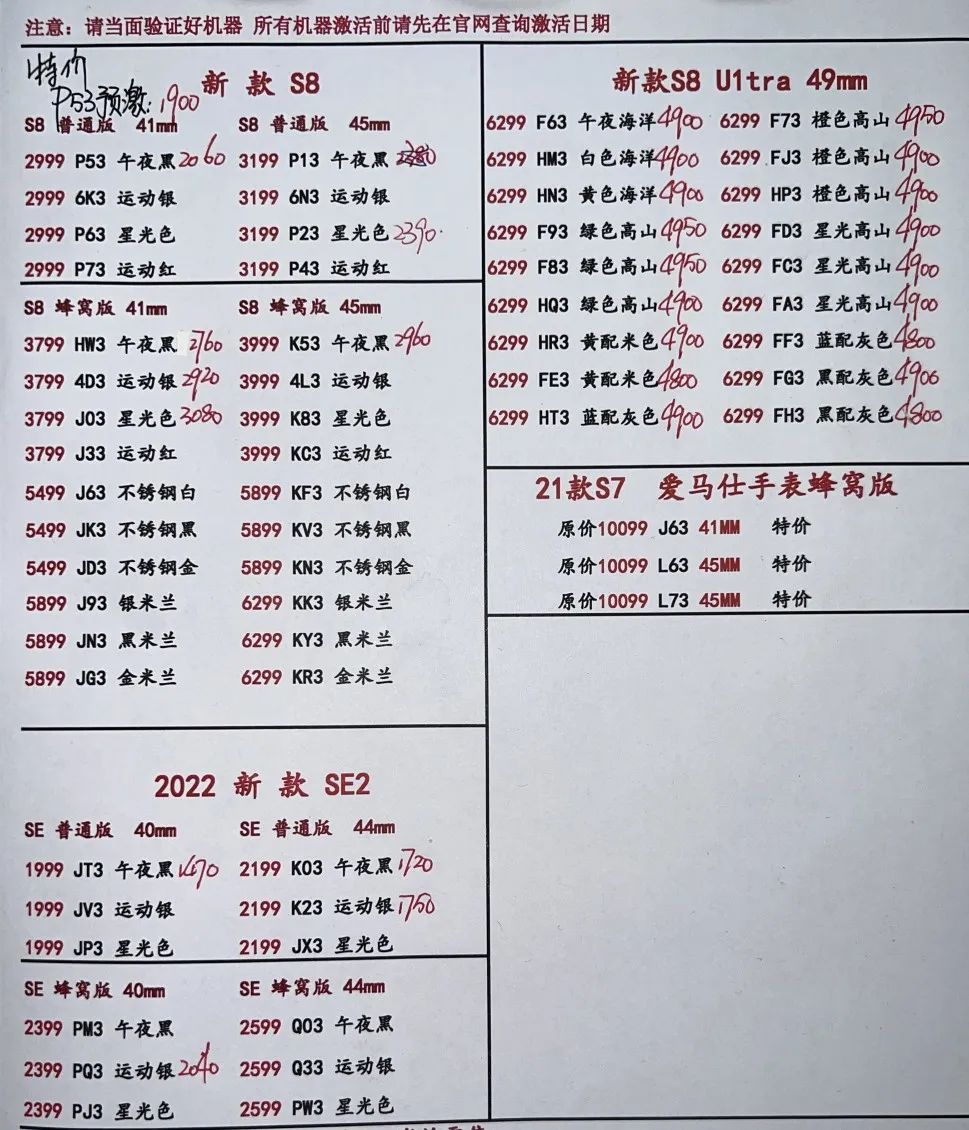 注意：请当面验证好机器 所有机器激活前请先在官网查询激活日期
特价
P53预激：1900
新 款 S8
S8 普通版 41mm
2999 P53 午夜黑 2060
2999 6K3 运动银
2999 P63 星光色
2999 P73 运动红
S8 普通版 45mm
3199 P13 午夜黑
3199 6N3 运动银
3199 P23 星光色 2390
3199 P43 运动红
S8 蜂窝版 41mm
3799 HW3 午夜黑 2760
3799 4D3 运动银 2920
3799 J03 星光色 3080
3799 J33 运动红
5499 J63 不锈钢白
5499 JK3 不锈钢黑
5499 JD3 不锈钢金
5899 J93 银米兰
5899 JN3 黑米兰
5899 JG3 金米兰
S8 蜂窝版 45mm
3999 K53 午夜黑 2960
3999 4L3 运动银
3999 K83 星光色
3999 KC3 运动红
5899 KF3 不锈钢白
5899 KV3 不锈钢黑
5899 KN3 不锈钢金
6299 KK3 银米兰
6299 KY3 黑米兰
6299 KR3 金米兰
2022 新 款 SE2
SE 普通版 40mm
1999 JT3 午夜黑 1470
1999 JV3 运动银
1999 JP3 星光色
SE 普通版 44mm
2199 K03 午夜黑 1720
2199 K23 运动银 1750
2199 JX3 星光色
SE 蜂窝版 40mm
2399 PM3 午夜黑
2399 PQ3 运动银 2040
2399 PJ3 星光色
SE 蜂窝版 44mm
2599 Q03 午夜黑
2599 Q33 运动银
2599 PW3 星光色
新款S8 U1tra 49mm
6299 F63 午夜海洋 4900
6299 HM3 白色海洋 4900
6299 HN3 黄色海洋 4900
6299 F93 绿色高山 4950
6299 F83 绿色高山 4950
6299 HQ3 绿色高山 4900
6299 HR3 黄配米色 4900
6299 FE3 黄配米色 4800
6299 HT3 蓝配灰色 4900
6299 F73 橙色高山 4950
6299 FJ3 橙色高山 4900
6299 HP3 橙色高山 4900
6299 FD3 星光高山 4900
6299 FC3 星光高山 4900
6299 FA3 星光高山 4900
6299 FF3 蓝配灰色 4800
6299 FG3 黑配灰色 4900
6299 FH3 黑配灰色 4800
21款S7 爱马仕手表蜂窝版
原价10099 J63 41MM 特价
原价10099 L63 45MM 特价
原价10099 L73 45MM 特价